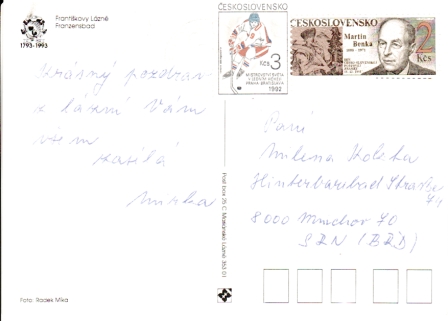 Františkovy Lázně
Franzensbad
1793-1993
Krásný pozdrav
z lázní Vám
všem
zasílá
Mirka
Foto: Radek Mika
ČESKOSLOVENSKO
Kčs 3
MISTROVSTVÍ SVĚTA
V LEDNÍM HOKEJI
PRAHA-BRATISLAVA
1992
ČESKOSLOVENSKO
Martin
Benka
2
Kčs
Paní
Milena
8000 München 70
SRN (BRD)